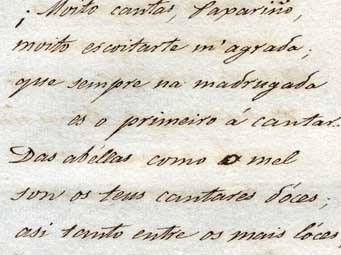 ¡Moito cantas, Paxariño,
moito escoitarte m'agrada;
que sempre na madrugada
es o primeiro á cantar.
Das abéllas como o mel
son os teus cantares dóces;
asi tanto entre os mais lóces,